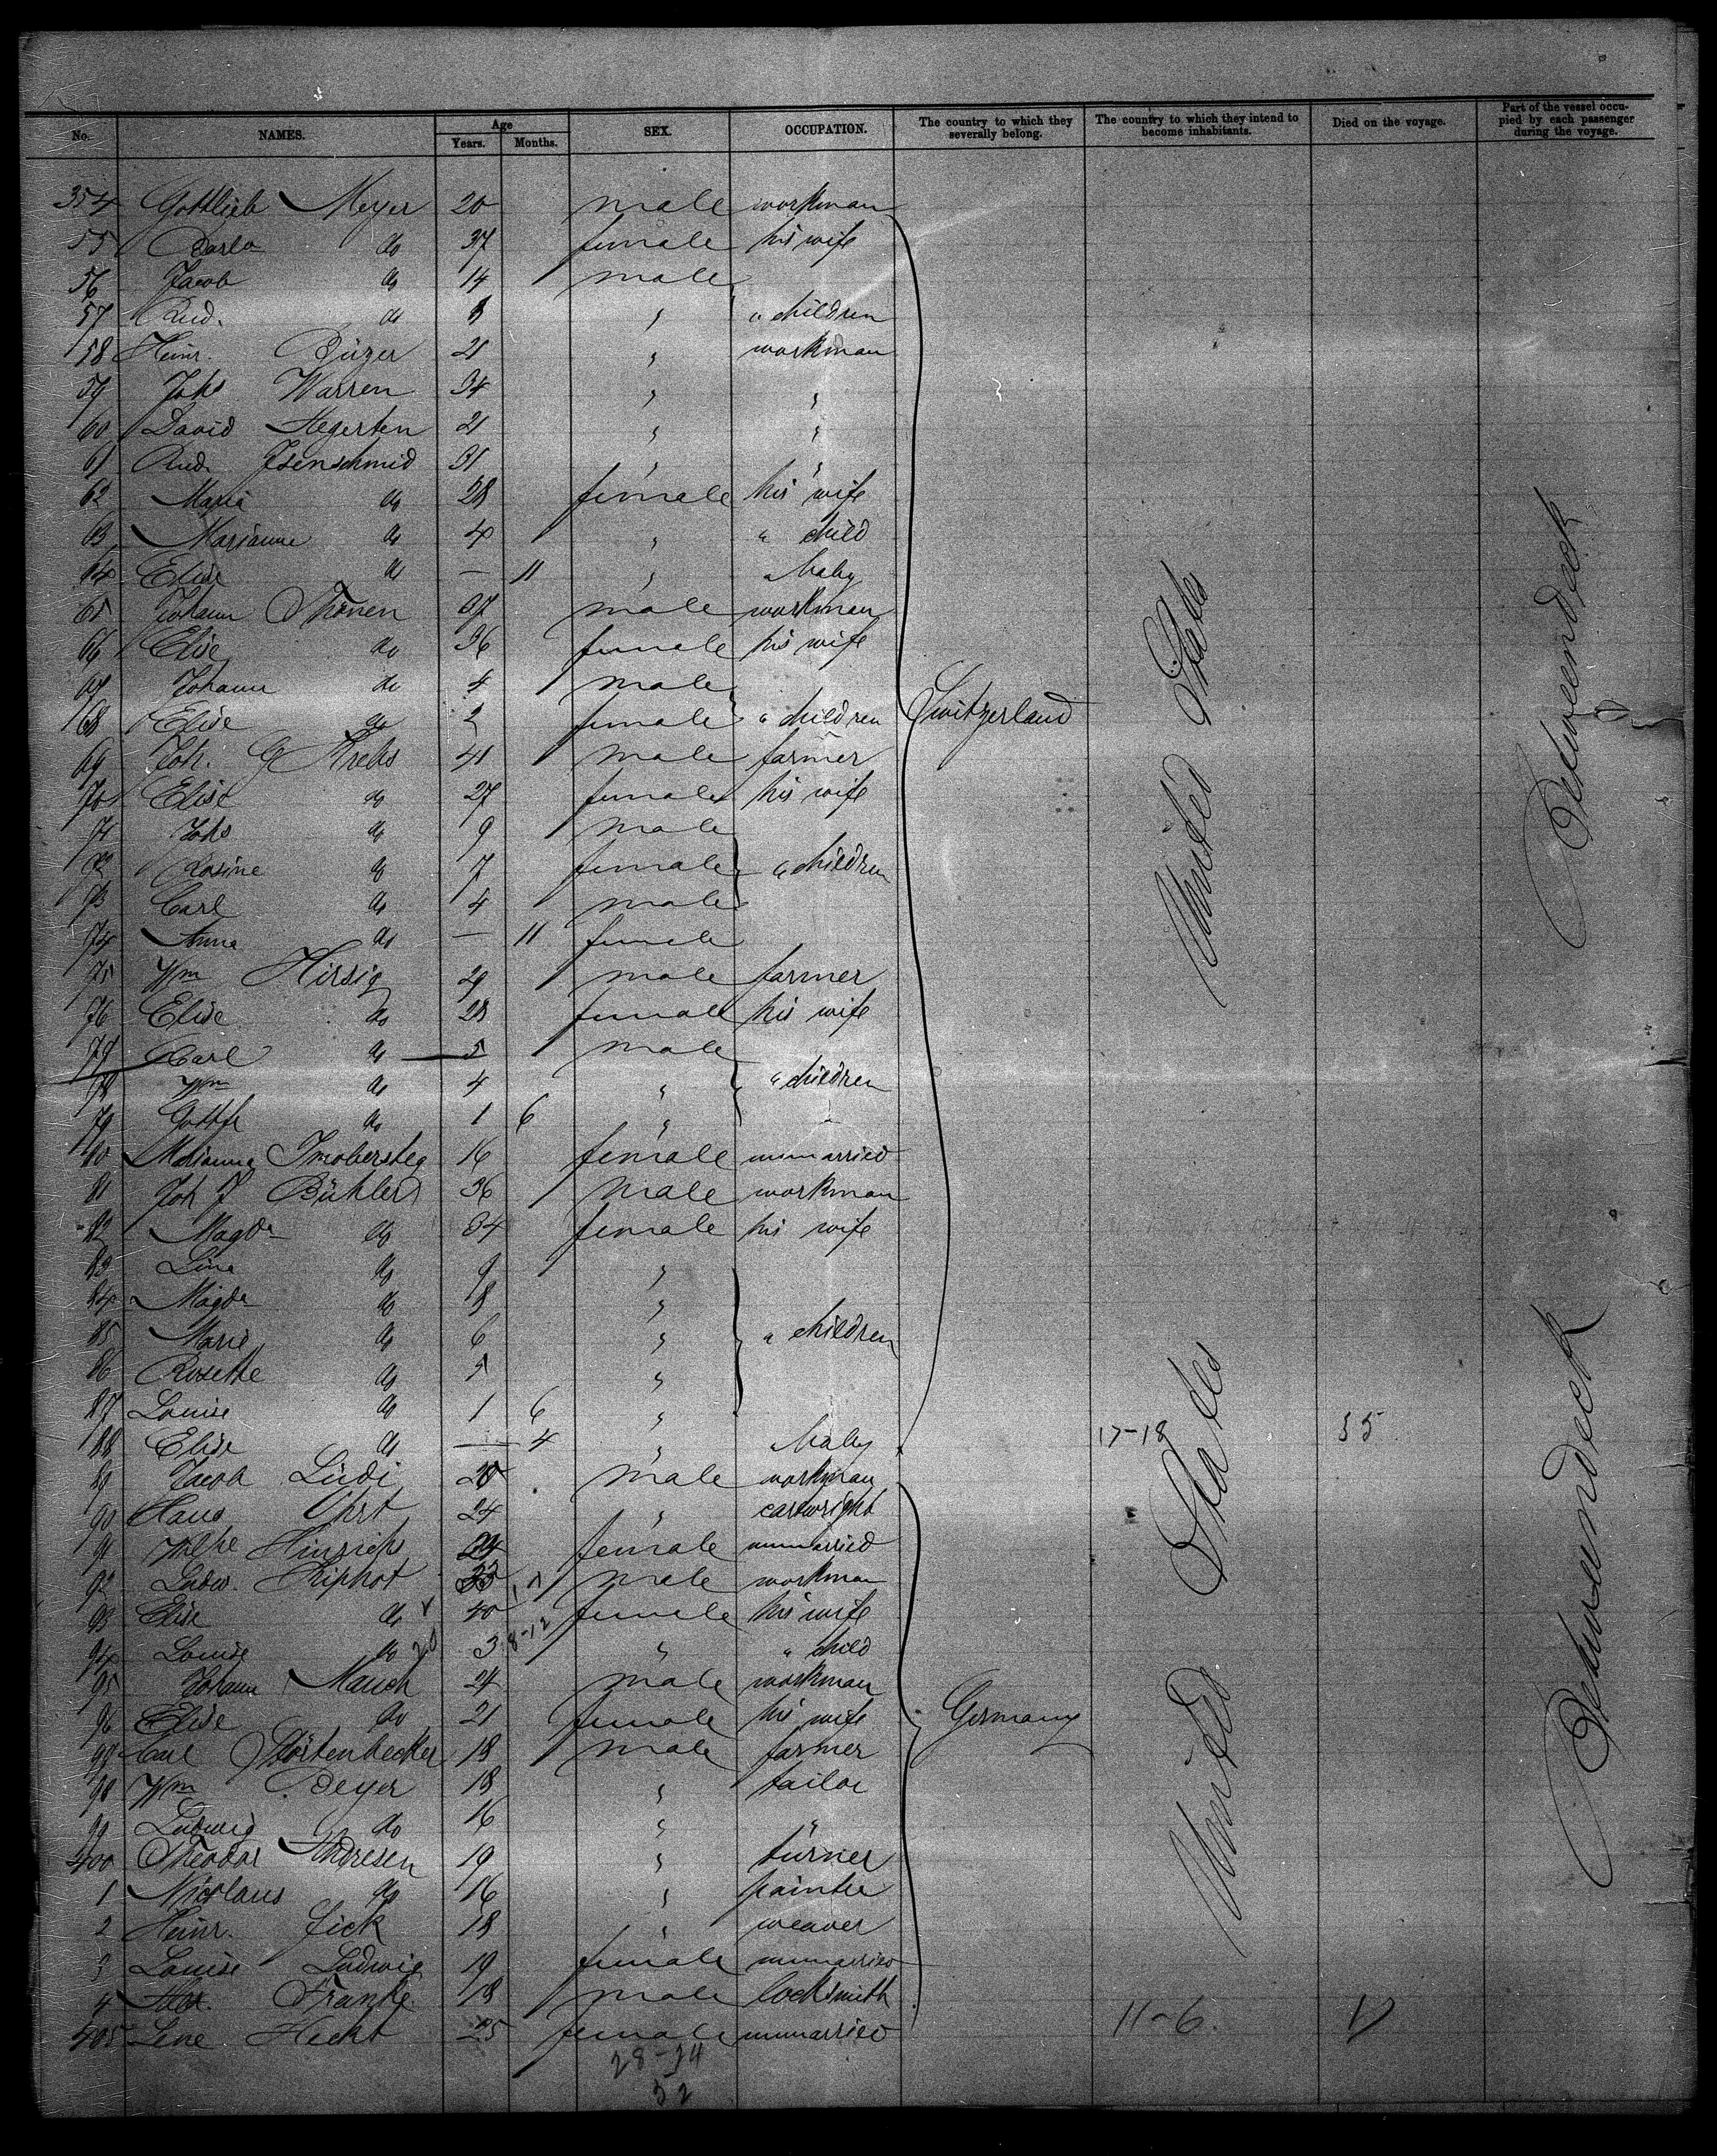 No. NAMES. Age Years. Months. SEX. OCCUPATION. The country to which they severally belong. The country to which they intend to become inhabitants. Died on the voyage. Part of the vessel occupied by each passenger during the voyage.
354 Gottlieb Meyer 20 male workman
55 do 37 female his wife
56 Jacob do 14 male
57 Rud. do 8 " " children
58 Heinr. 21 " workman
59 Johs Warren 34 " "
60 David Hegerten 21 " "
61 Rud. Isenschmid 31 " "
62 Maria do 28 female his wife
63 Marianne do 4 " " child
64 Elise do — 11 " " baby
65 Johann Thönen 37 male workman
66 Elise do 36 female his wife
67 Johann do 4 male
68 Elise do 2 female " children Switzerland United States Betweendeck
69 Joh. G Krebs 41 male farmer
70 Elise do 27 female his wife
71 Johs do 9 male
72 Rosine do 7 female " children
73 Carl do 4 male
74 Anna do — 11 female
75 Wm Hirsig 29 male farmer
76 Elise do 28 female his wife
77 Carl do 5 male
78 Wm do 4 " " children
79 do 1 6 "
80 Marianna Imobersteg 16 female unmarried
81 Joh J Bühler 36 male workman
82 Magda do 34 female his wife
83 Lina do 9 "
84 Magda do 8 "
85 Marie do 6 " " children
86 Rosette do 5 "
87 Louise do 1 6 "
88 Elise do — 4 " baby 17-18 35
89 Jacob Lüdi 20 male workman
90 Hans Ohrt 24 " cartwright
91 Hinrichs female unmarried
92 Ludw. male workman
93 Elise do 40 female his wife
94 Louise do 3 8-12 " " child
95 Johann Mauch 24 male workman
96 Elise do 21 female his wife Germany United States Betweendeck
97 Carl Störtenbecker 18 male farmer
98 Wm Beyer 18 " tailor
99 Ludwig do 16 " "
400 Theodor Andresen 19 " turner
1 Nicolaus do 16 " painter
2 Heinr. Fick 18 " weaver
3 Louise Ludwig 19 female unmarried
4 Alex. Franke 18 male locksmith
405 Lene Hecht 25 female unmarried 11-6. 17
28-24
52